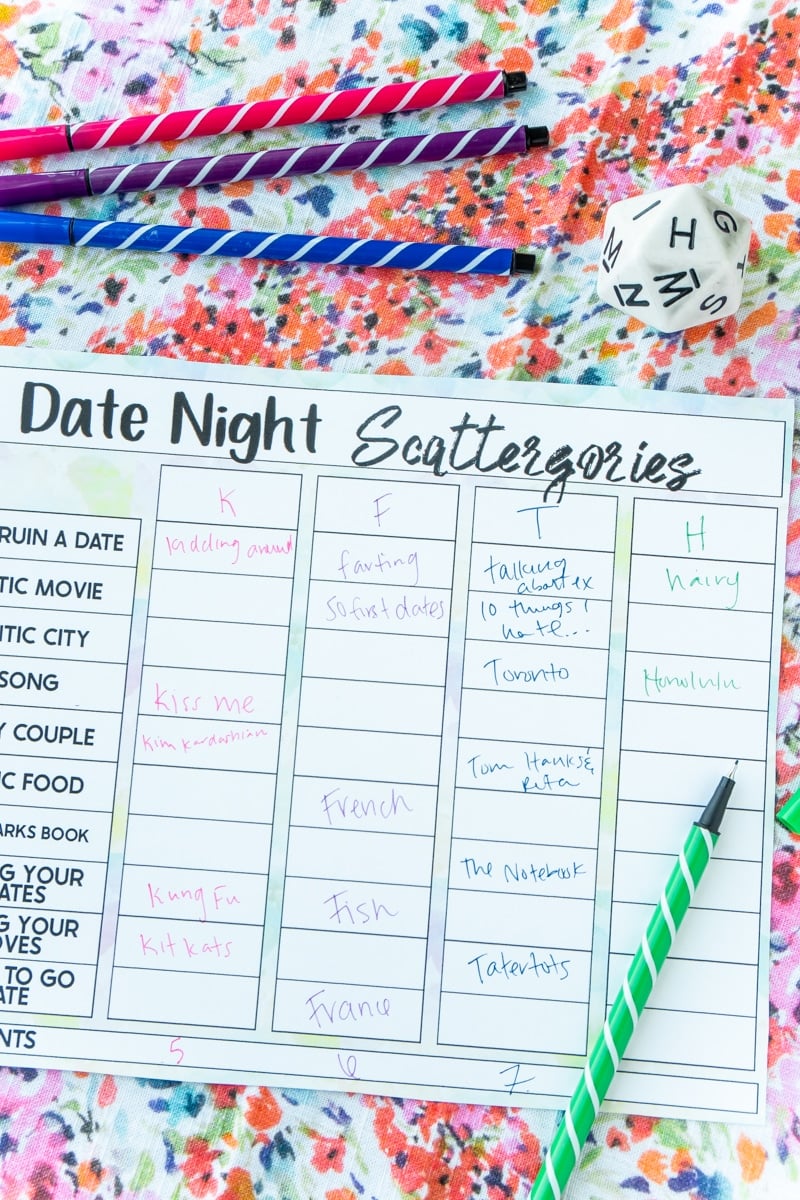 I H G T M N M S
Date Night Scattergories
K F T H
RUIN A DATE kidding around farting talking about ex hairy
TIC MOVIE 50 first dates 10 things I hate...
TIC CITY Toronto Honolulu
SONG Kiss me
Y COUPLE Kim Kardashian Tom Hanks & Rita
IC FOOD French
ARKS BOOK The Notebook
G YOUR ATES Kung Fu Fish
G YOUR OVES Kit Kats Tatertots
TO GO ATE France
NTS 5 6 7